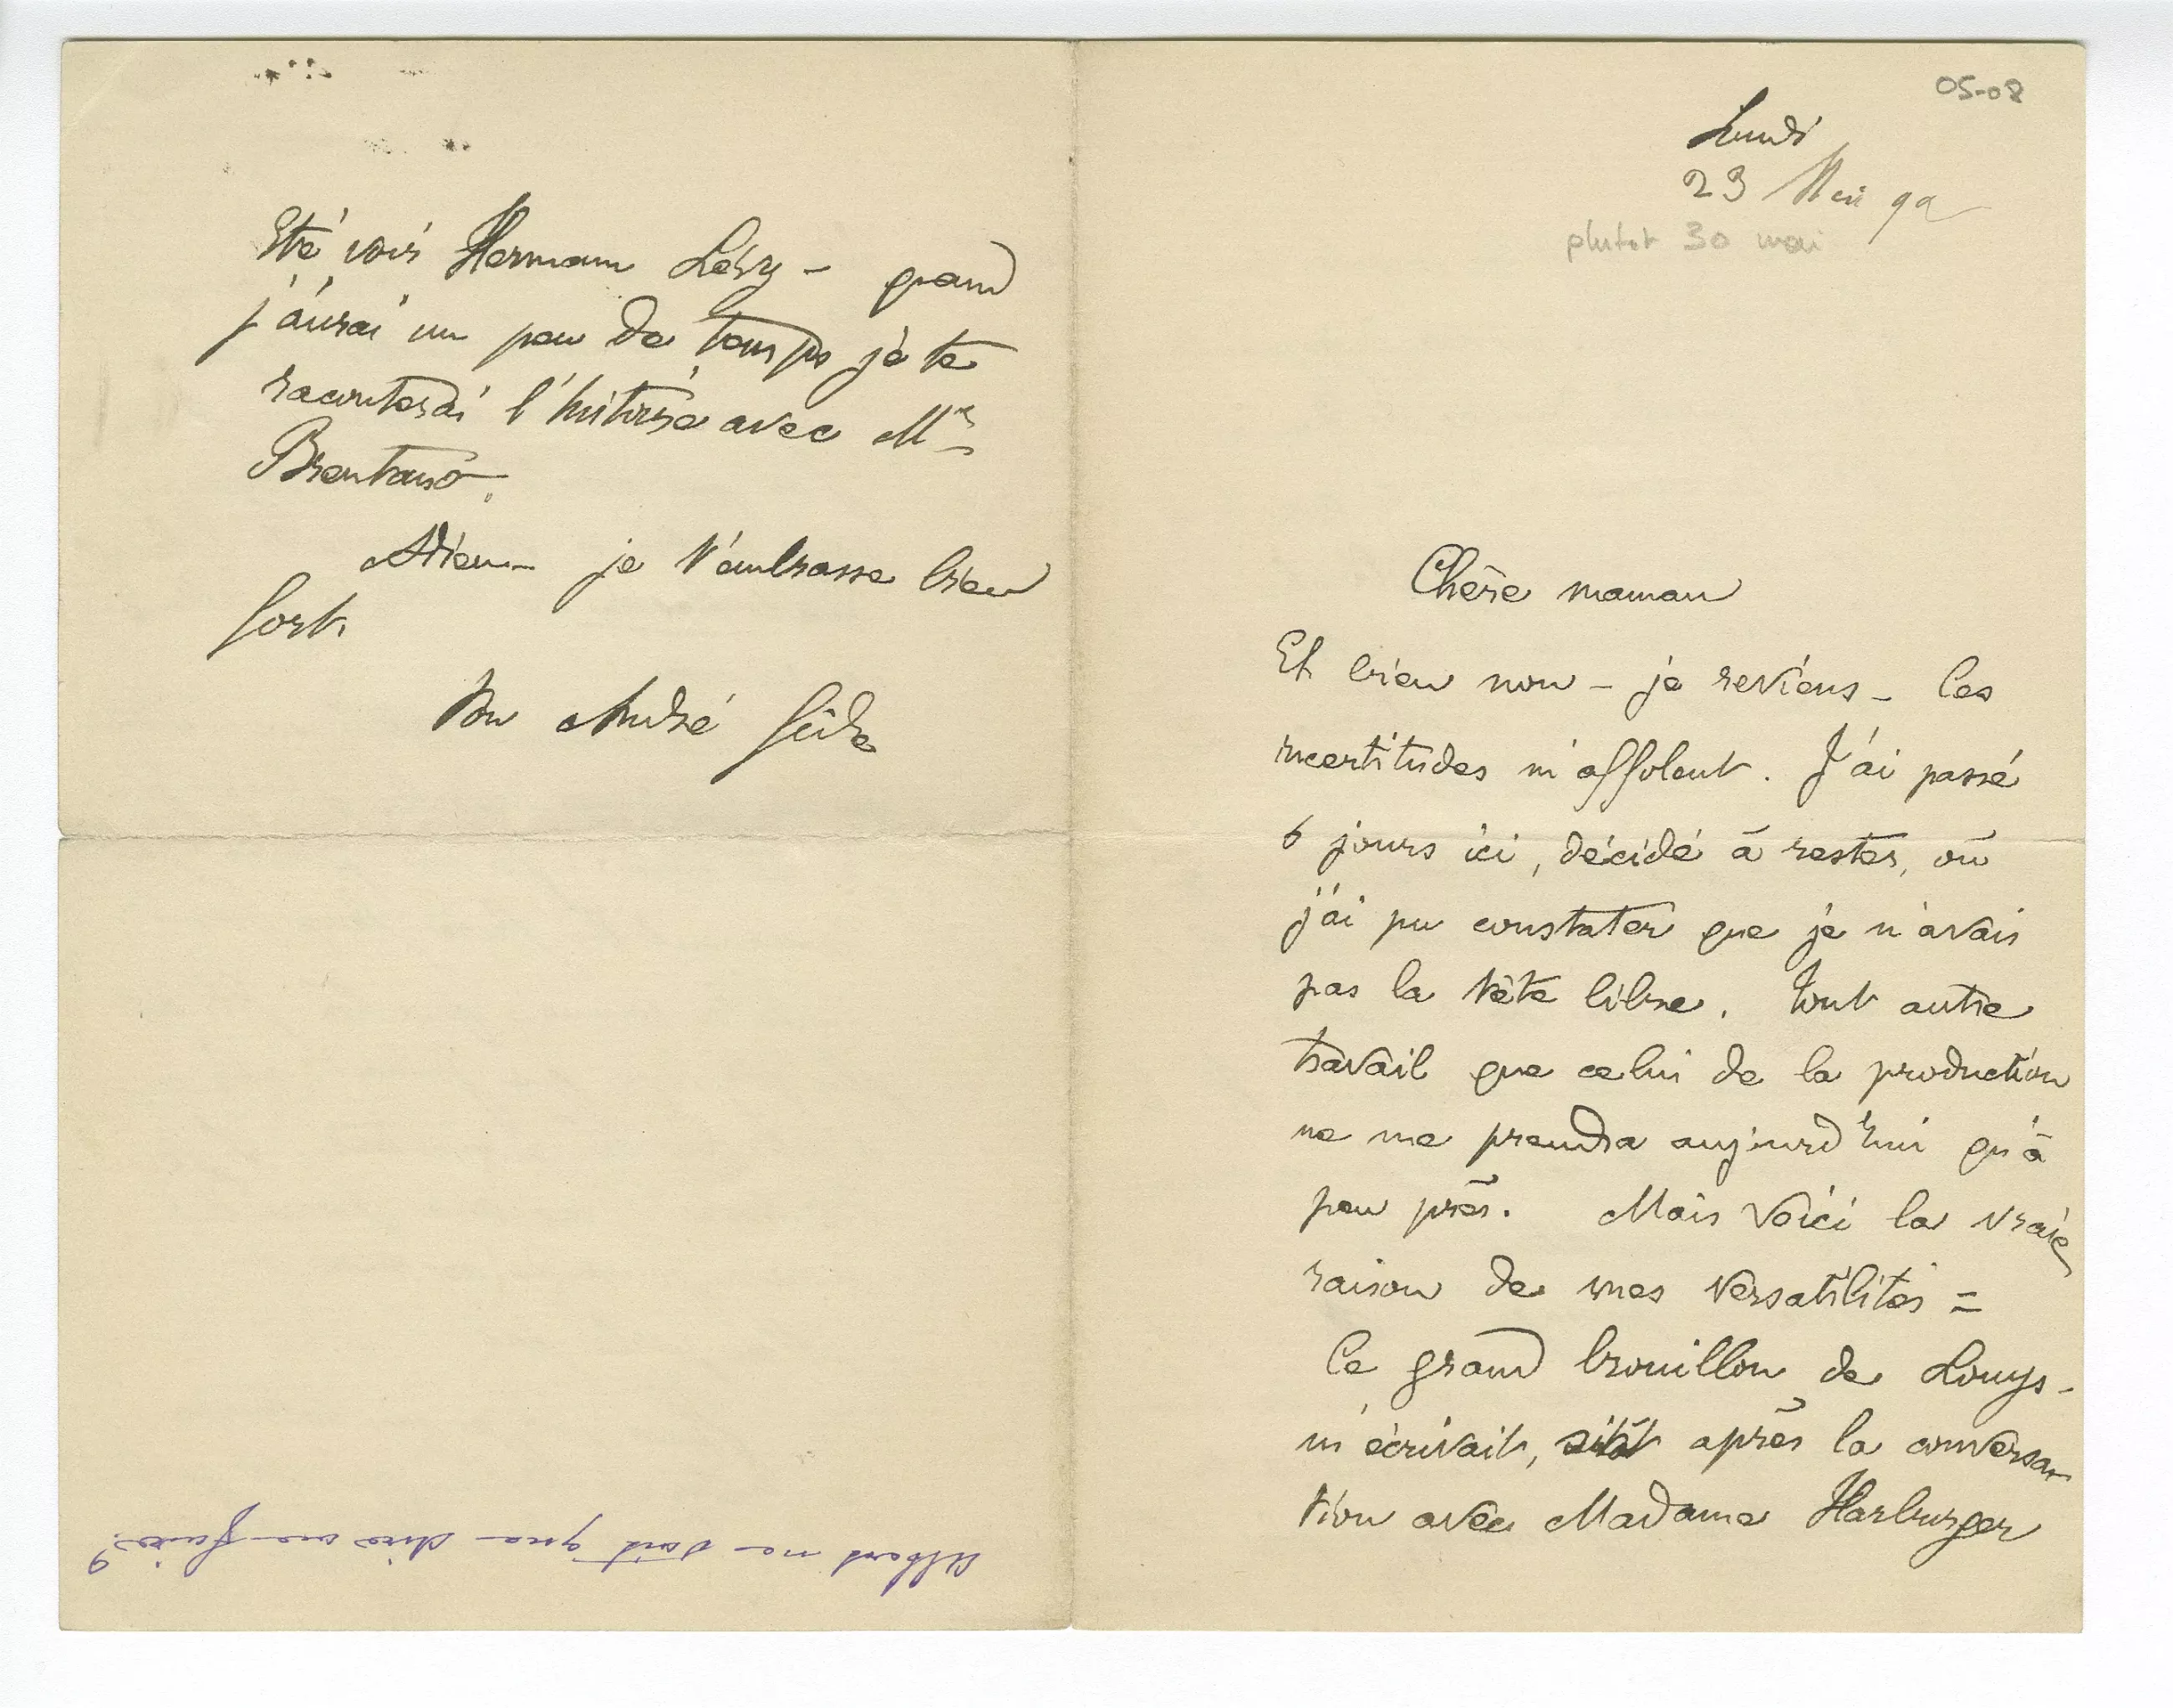 05-08
Lundi
23 Mai 92
plutot 30 mai
Chère maman
Et bien non – je reviens – les
incertitudes m'affolent. J'ai passé
6 jours ici, décidé à rester, où
j'ai pu constater que je n'avais
pas la tête libre. Tout autre
travail que celui de la production
ne me prendra aujourd'hui qu'à
peu près. Mais voici la vraie
raison de mes versatilités =
Ce grand brouillon de Louys –
m'écrivait, sitôt après la conversa-
tion avec Madame Harburger
Eté voir Hermann Lévy – quand
j'aurai un peu de temps je te
raconterai l'histoire avec Mr
Brentano.
Adieu – je t'embrasse bien
fort.
Ton André Gide
Albert me dit que